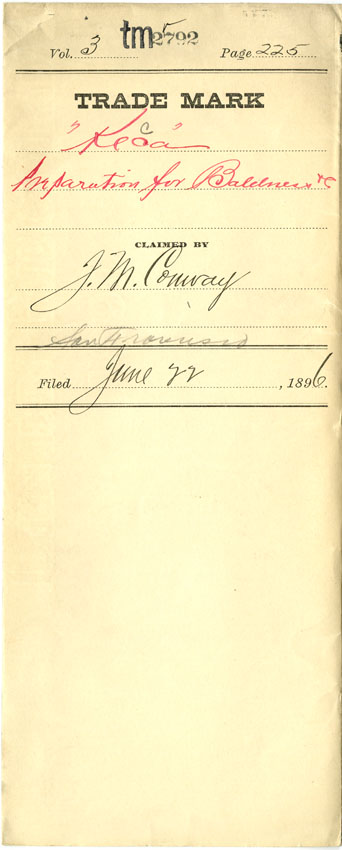 tm 5
2792
Vol. 3 Page 225
TRADE MARK
c
"Keca"
Preparation for Baldness &c
CLAIMED BY
J. M. Conway
San Francisco
Filed June 22, 1896.